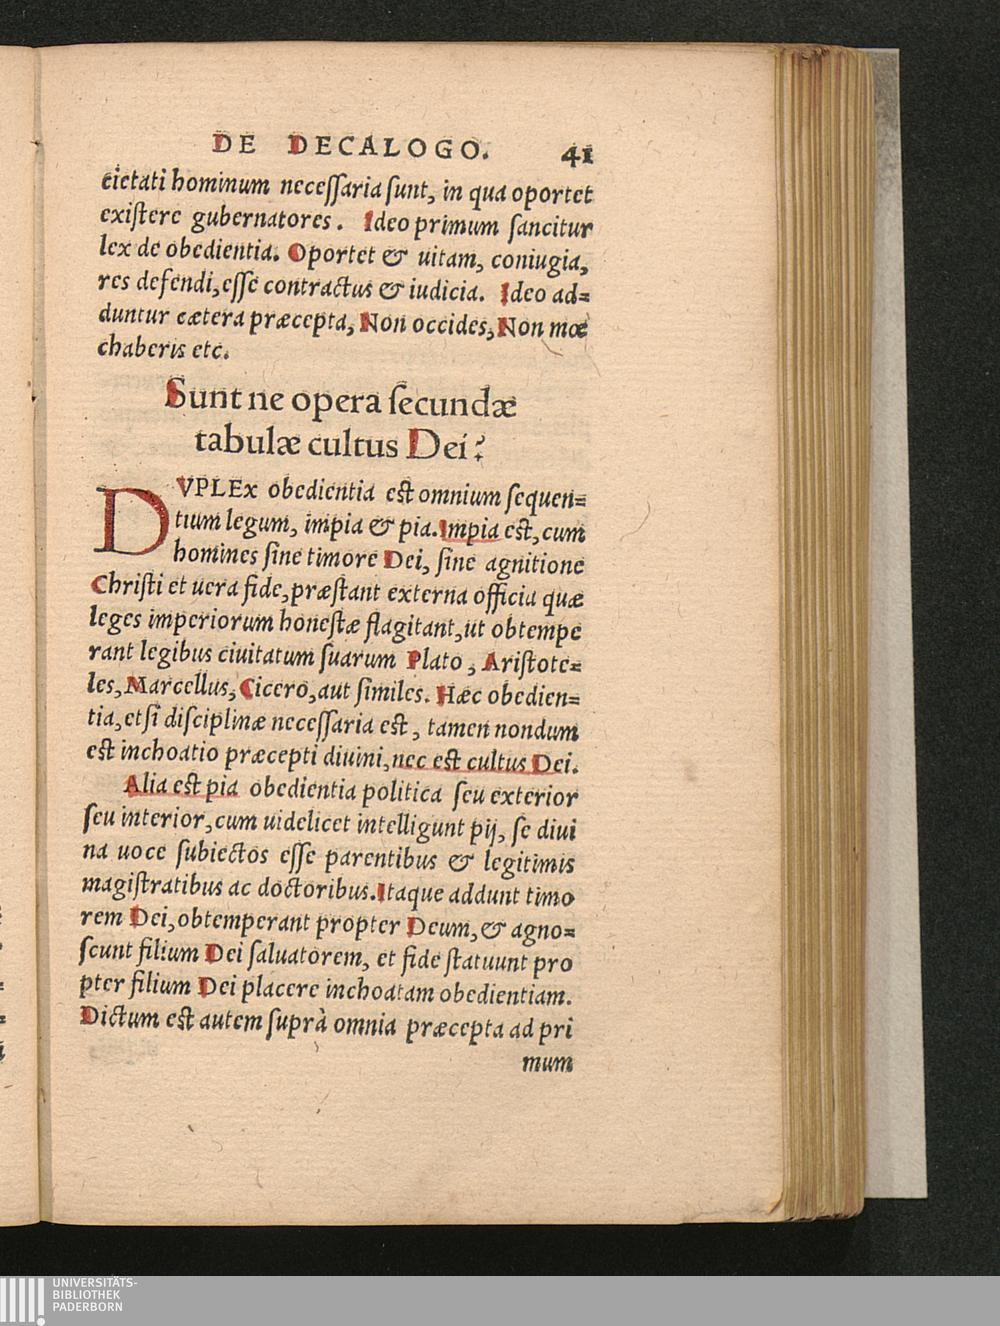 DE DECALOGO. 41
cietati hominum neceſſaria ſunt, in qua oportet
exiſtere gubernatores. Ideo primum ſancitur
lex de obedientia. Oportet & uitam, coniugia,
res defendi, eſſe contractus & iudicia. Ideo ad=
duntur cætera præcepta, Non occides, Non mœ
chaberis etc.
Sunt ne opera ſecundæ
tabulæ cultus Dei?
DVPLEx obedientia eſt omnium ſequen=
tium legum, impia & pia. Impia eſt, cum
homines ſine timore Dei, ſine agnitione
Chriſti et uera fide, præſtant externa officia quæ
leges imperiorum honeſtæ flagitant, ut obtempe
rant legibus ciuitatum ſuarum Plato, Ariſtote=
les, Marcellus, Cicero, aut ſimiles. Hæc obedien=
tia, etſi diſciplinæ neceſſaria eſt, tamen nondum
eſt inchoatio præcepti diuini, nec eſt cultus Dei.
Alia eſt pia obedientia politica ſeu exterior
ſeu interior, cum uidelicet intelligunt pij, ſe diui
na uoce ſubiectos eſſe parentibus & legitimis
magiſtratibus ac doctoribus. Itaque addunt timo
rem Dei, obtemperant propter Deum, & agno=
ſcunt filium Dei ſaluatorem, et fide ſtatuunt pro
pter filium Dei placere inchoatam obedientiam.
Dictum eſt autem ſuprà omnia præcepta ad pri
mum
UNIVERSITÄTS-
BIBLIOTHEK
PADERBORN